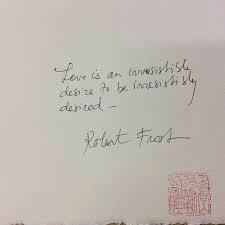 Love is an irresistisly
desire to be irresistisly
desired —
Robert Frost